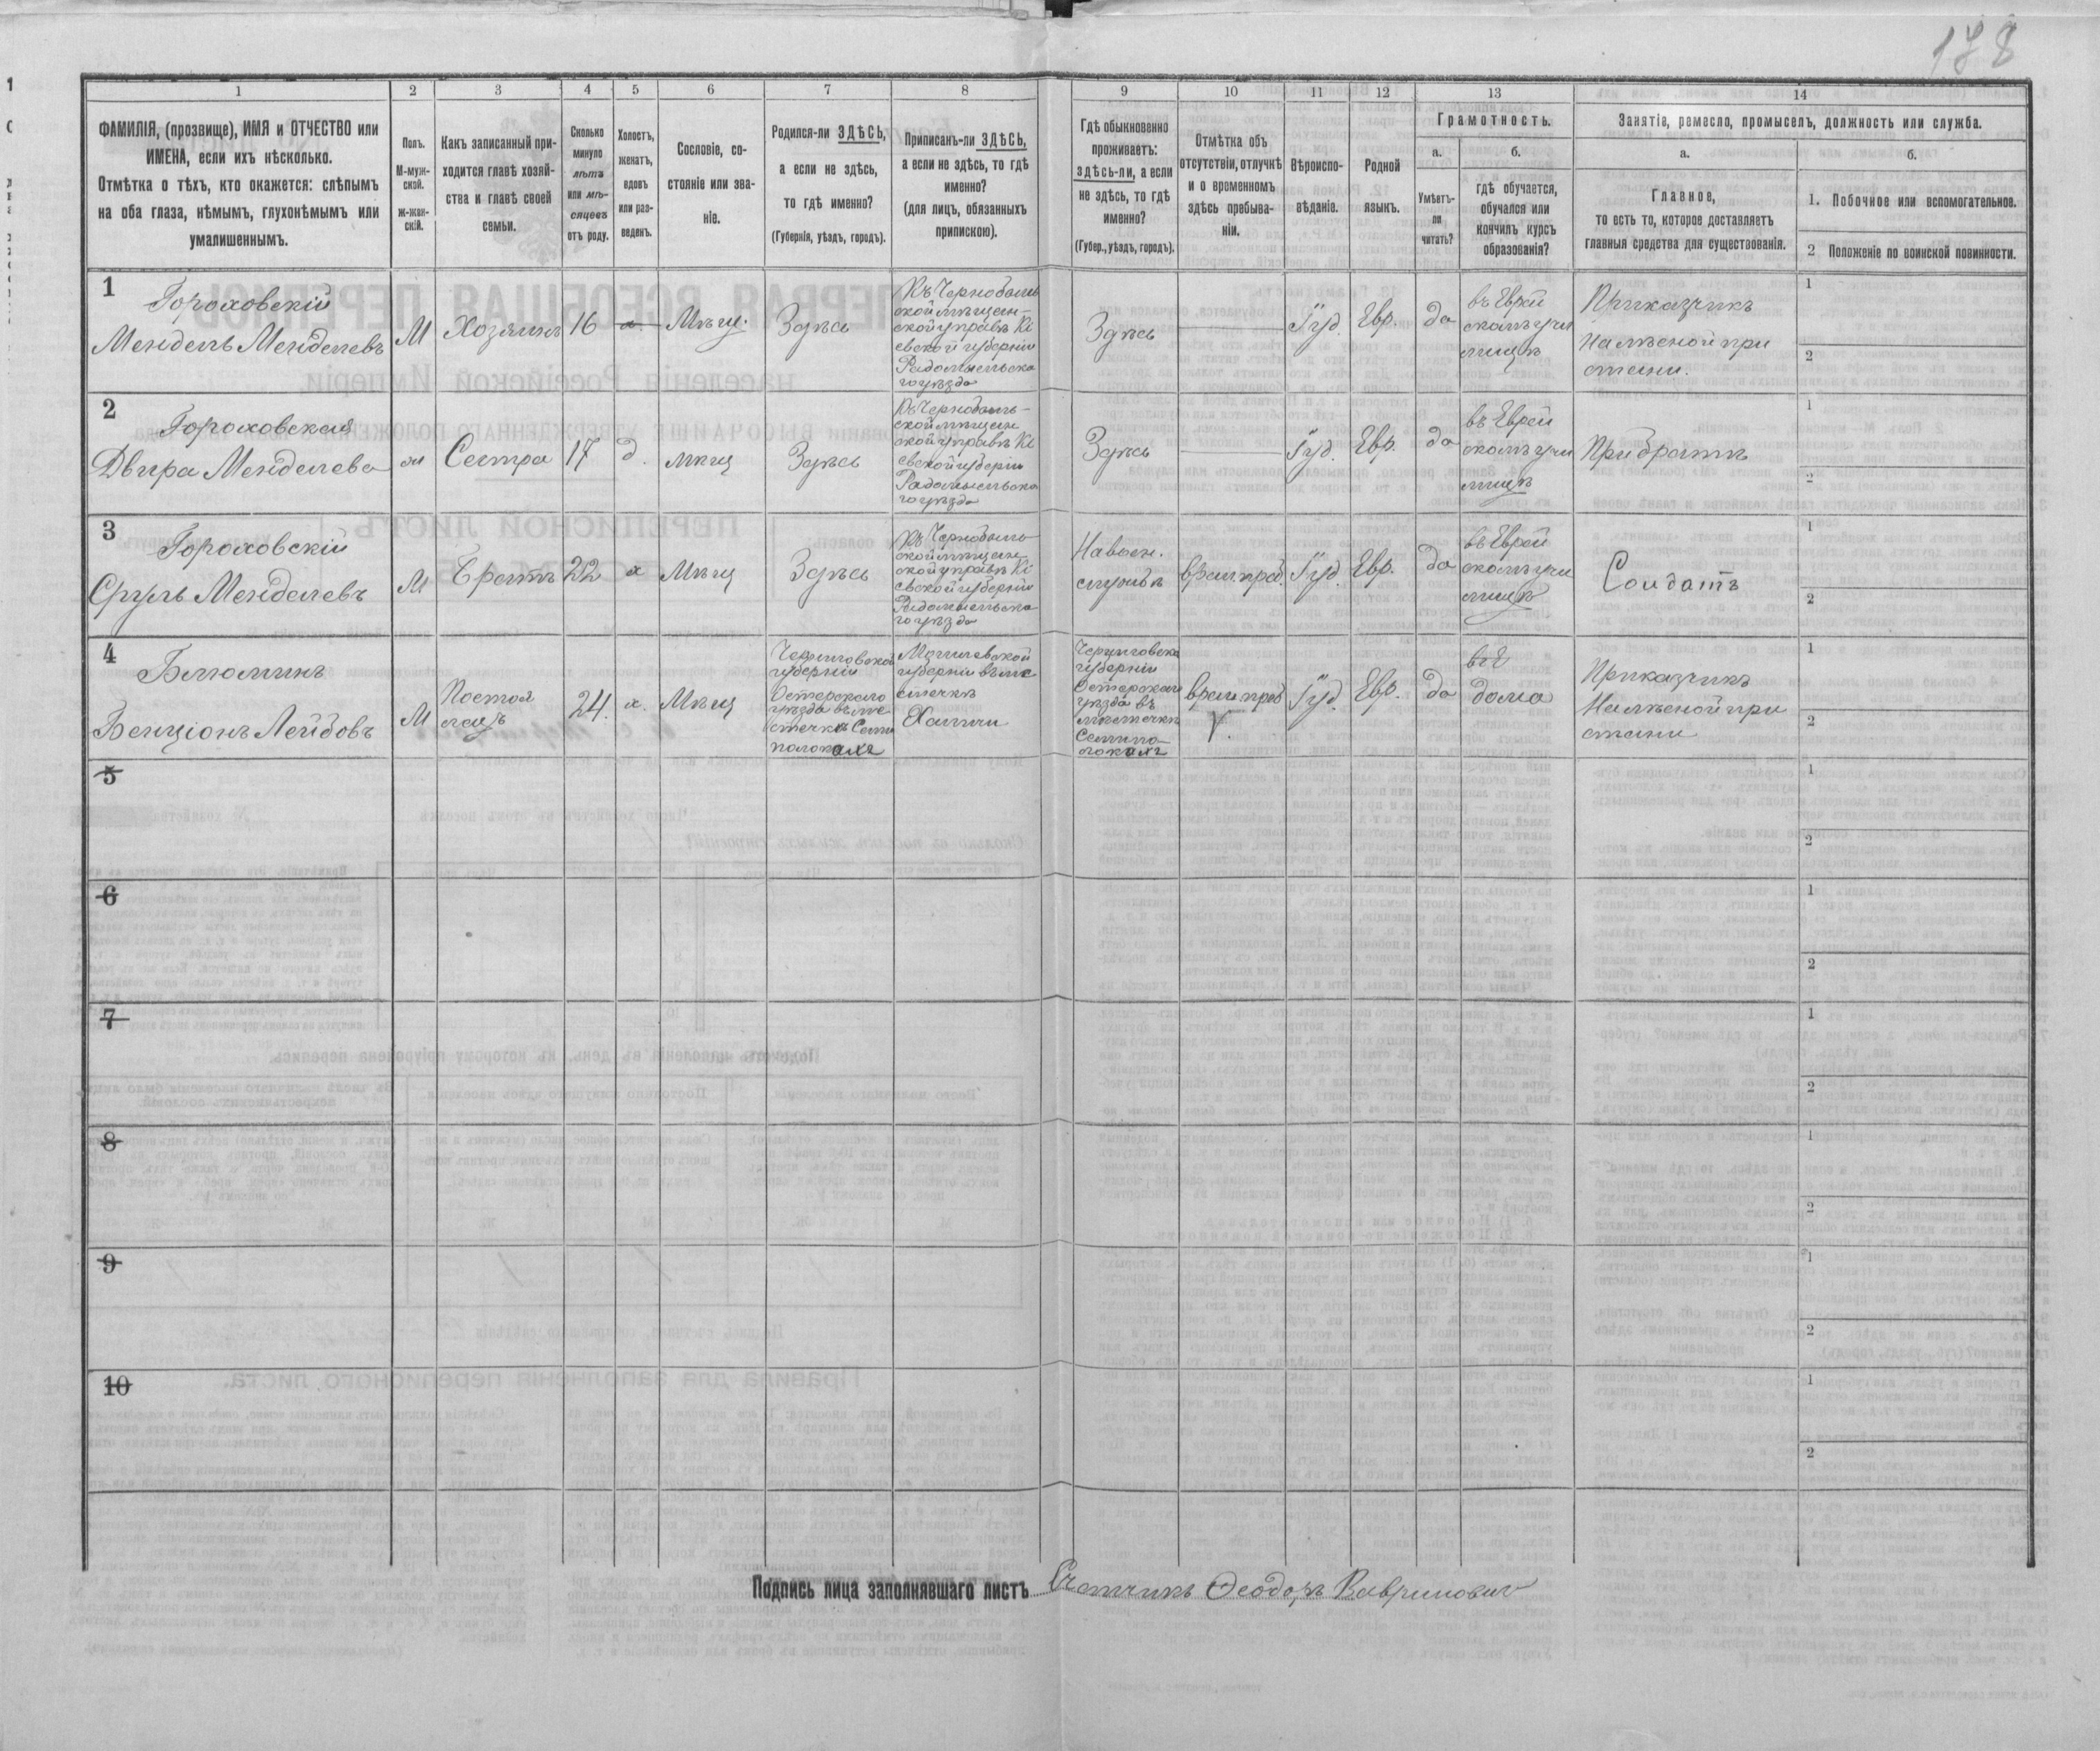 178
1 2 3 4 5 6 7 8 9 10 11 12 13 14
ФАМИЛІЯ, (прозвище), ИМЯ и ОТЧЕСТВО или
ИМЕНА, если ихъ нѣсколько.
Отмѣтка о тѣхъ, кто окажется: слѣпымъ
на оба глаза, нѣмымъ, глухонѣмымъ или
умалишеннымъ.
Полъ.
М-муж-
ской.
ж-жен-
скій.
Какъ записанный при-
ходится главѣ хозяй-
ства и главѣ своей
семьи.
Сколько
минуло
лѣтъ
или мѣ-
сяцевъ
отъ роду.
Холостъ,
женатъ,
вдовъ
или раз-
веденъ.
Сословіе, со-
стояніе или зва-
ніе.
Родился-ли ЗДѢСЬ,
а если не здѣсь,
то гдѣ именно?
(Губернія, уѣздъ, городъ).
Приписанъ-ли ЗДѢСЬ,
а если не здѣсь, то гдѣ
именно?
(для лицъ, обязанныхъ
припискою).
Гдѣ обыкновенно
проживаетъ:
здѣсь-ли, а если
не здѣсь, то гдѣ
именно?
(Губер., уѣздъ, городъ).
Отмѣтка объ
отсутствіи, отлучкѣ
и о временномъ
здѣсь пребыва-
ніи.
Вѣроиспо-
вѣданіе.
Родной
языкъ.
Грамотность.
а.
Умѣетъ-
ли
читать?
б.
гдѣ обучается,
обучался или
кончилъ курсъ
образованія?
Занятіе, ремесло, промыселъ, должность или служба.
а.
Главное,
то есть то, которое доставляетъ
главныя средства для существованія.
б.
1. Побочное или вспомогательное.
2 Положеніе по воинской повинности.
1
Гороховскій
Мендель Менделевъ
М
Хозяинъ
16
х
Мѣщ.
Здѣсь
Къ Чернобыль
ской мѣщан-
ской управѣ Кі
евской губерніи
Радомысльска
го уѣзда
Здѣсь
Іуд.
Евр.
да
въ Еврей
скомъ учи
лищѣ
Приказчикъ
На лѣсной при
стани.
1
2
2
Гороховская
Двыра Менделева
ж
Сестра
17
д.
мѣщ
Здѣсь
Къ Чернобыль-
ской мѣщан
ской управѣ Кі
евской губерніи
Радомысльска
го уѣзда
Здѣсь
Іуд.
Евр.
да
въ Еврей
скомъ учи
лищѣ
При братѣ
1
2
3
Гороховскій
Сруль Менделевъ
М
Братъ
22
х
Мѣщ
Здѣсь
Къ Чернобыль
ской мѣщан
ской управѣ Кі
евской губерніи
Радомысльска
го уѣзда
На воен.
службѣ
врем. преб.
Іуд.
Евр.
да
въ Еврей
скомъ учи
лищѣ
Солдатъ
1
2
4
Блюминъ
Бенціонъ Лейбовъ
М
Постоя
лецъ
24.
х.
Мѣщ
Черниговской
губерніи
Остерскаго
уѣзда въ мѣ
стечкѣ Семи
полокахъ
Могилевской
губерніи въ мѣ
стечкѣ
Халчи
Черниговской
губерніи
Остерскаго
уѣзда въ
мѣстечкѣ
Семипо-
локахъ
врем. преб
V.
Іуд.
Евр.
да
въ Е
дома
Приказчикъ
На лѣсной при
стани
1
2
5
1
2
6
1
2
7
1
2
8
1
2
9
1
2
10
1
2
Подпись лица заполнявшаго листъ Счетчикъ Ѳеодоръ Вавриновичъ